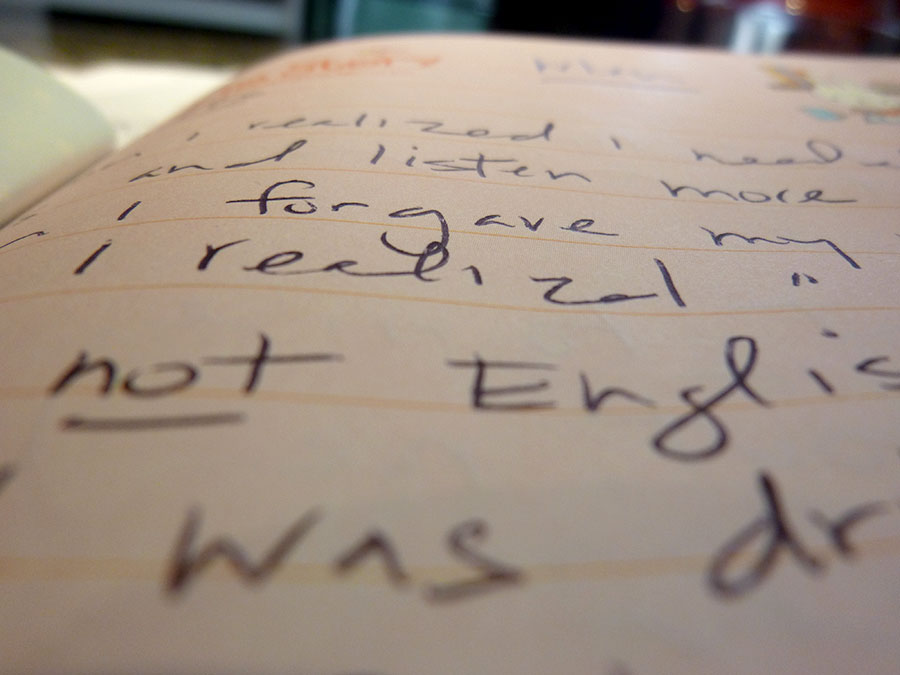 When
I realized I need
and listen more
I forgave my
I realized "
not Englis
was dr